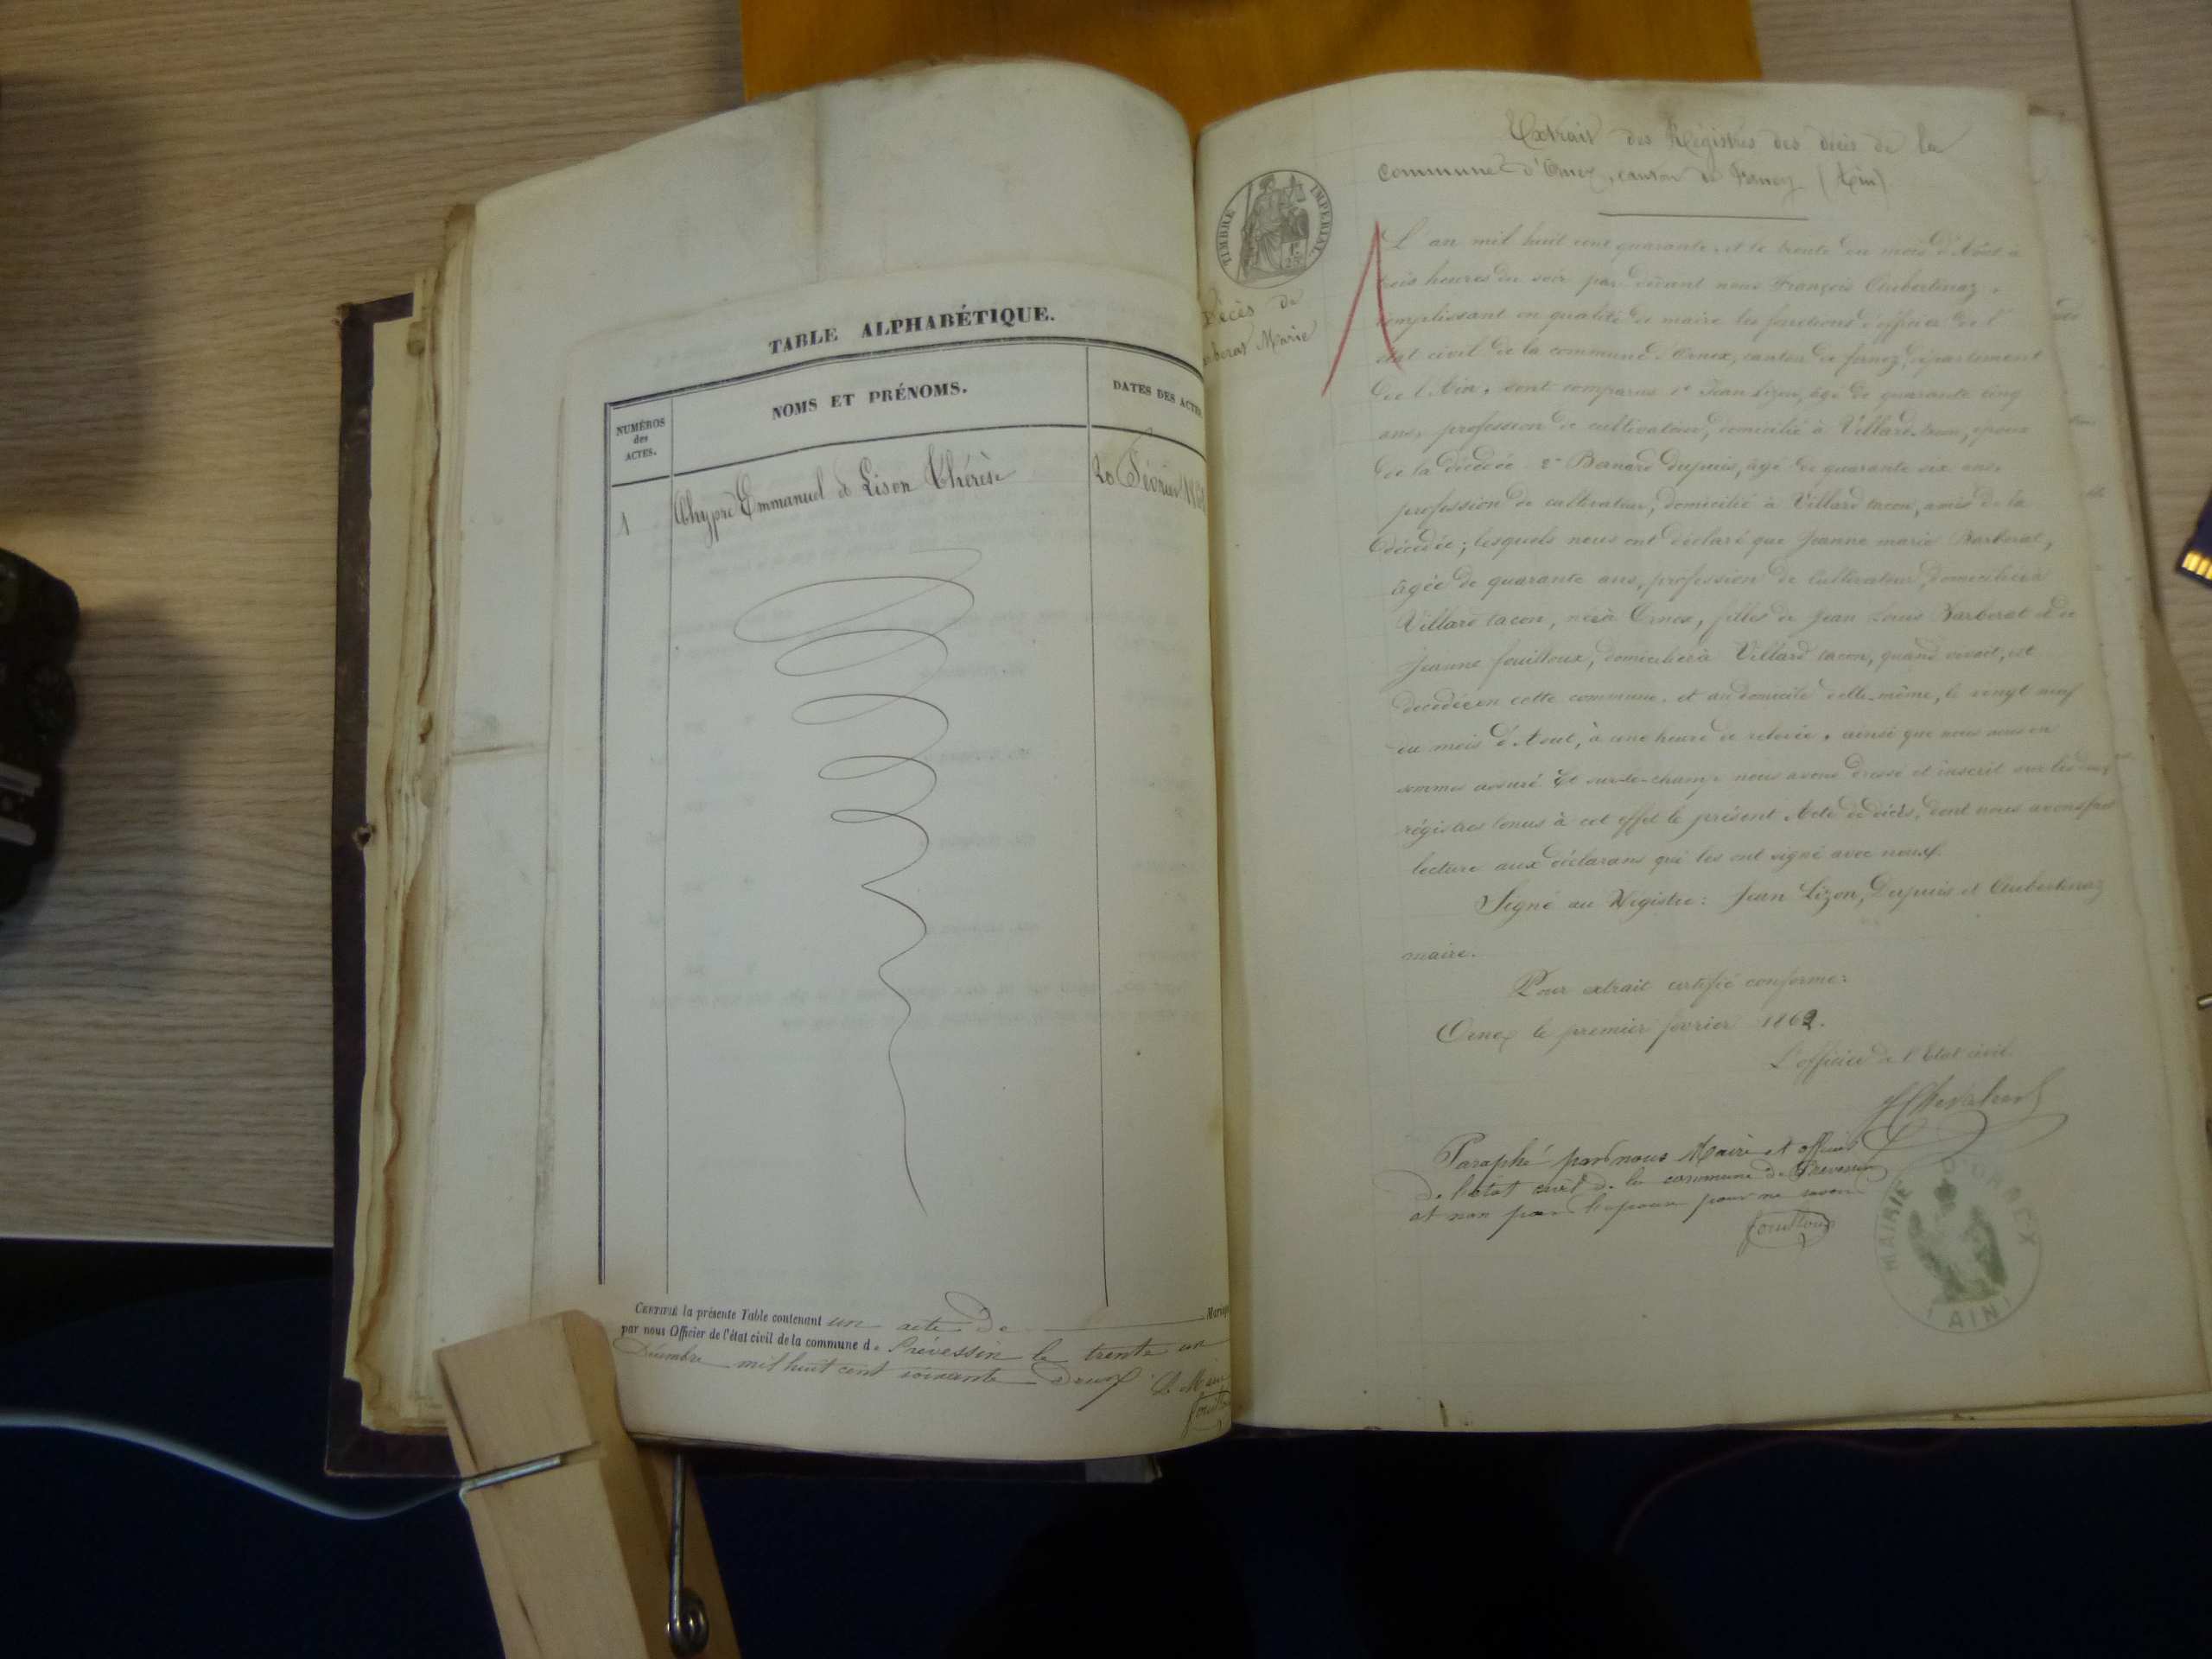 TABLE ALPHABÉTIQUE.
NUMÉROS
des
ACTES.
NOMS ET PRÉNOMS.
DATES DES ACTE
1
Chypre Emmanuel & Lison Thérèse
20 Février
CERTIFIÉ la présente Table contenant un acte de Mariage
par nous Officier de l'état civil de la commune de Prévessin le trente un
Décembre mil huit cent soixante deux Le Maire
Fouilloux
Extrait des Régistres des décès de la
commune d'Ornex, canton de Ferney (Ain)
TIMBRE IMPERIAL
Décès de
Barberat Marie
L'an mil huit cent quarante et le trente du mois d'Août à
trois heures du soir par devant nous François Aubertinaz,
remplissant en qualité de maire les fonctions d'officier de l'
état civil de la commune d'Ornex, canton de ferney, département
de l'Ain, sont comparus 1° Jean Lizon, âgé de quarante cinq
ans, profession de cultivateur, domicilié à Villard tacon, époux
de la décédée 2° Bernard Dupuis, âgé de quarante six ans,
profession de cultivateur, domicilié à Villard tacon, amis de la
décédée; lesquels nous ont déclaré que Jeanne marie Barberat,
âgée de quarante ans, profession de cultivateur, domiciliée à
Villard tacon, née à Ornex, filles de Jean Louis Barberat et de
Jeanne fouilloux, domiciliée à Villard tacon, quand vivait, est
décédée en cette commune et au domicile d'elle-même, le vingt neuf
du mois d'Aout, à une heure de relevée, ainsi que nous nous en
sommes assuré Et sur-le-champ nous avons dressé et inscrit sur les deux
régistres tenus à cet effet le présent Acte de décès, dont nous avons fait
lecture aux déclarans qui les ont signé avec nous.
Signé au Régistre: Jean Lizon, Dupuis et Aubertinaz
maire.
Pour extrait certifié conforme:
Ornex le premier février 1862.
L'officier de l'Etat civil.
Paraphé par nous Maire et officier
de l'état civil de la commune de Prévessin
et non par l'époux pour ne savoir
Fouilloux
MAIRIE D'ORNEX
(AIN)